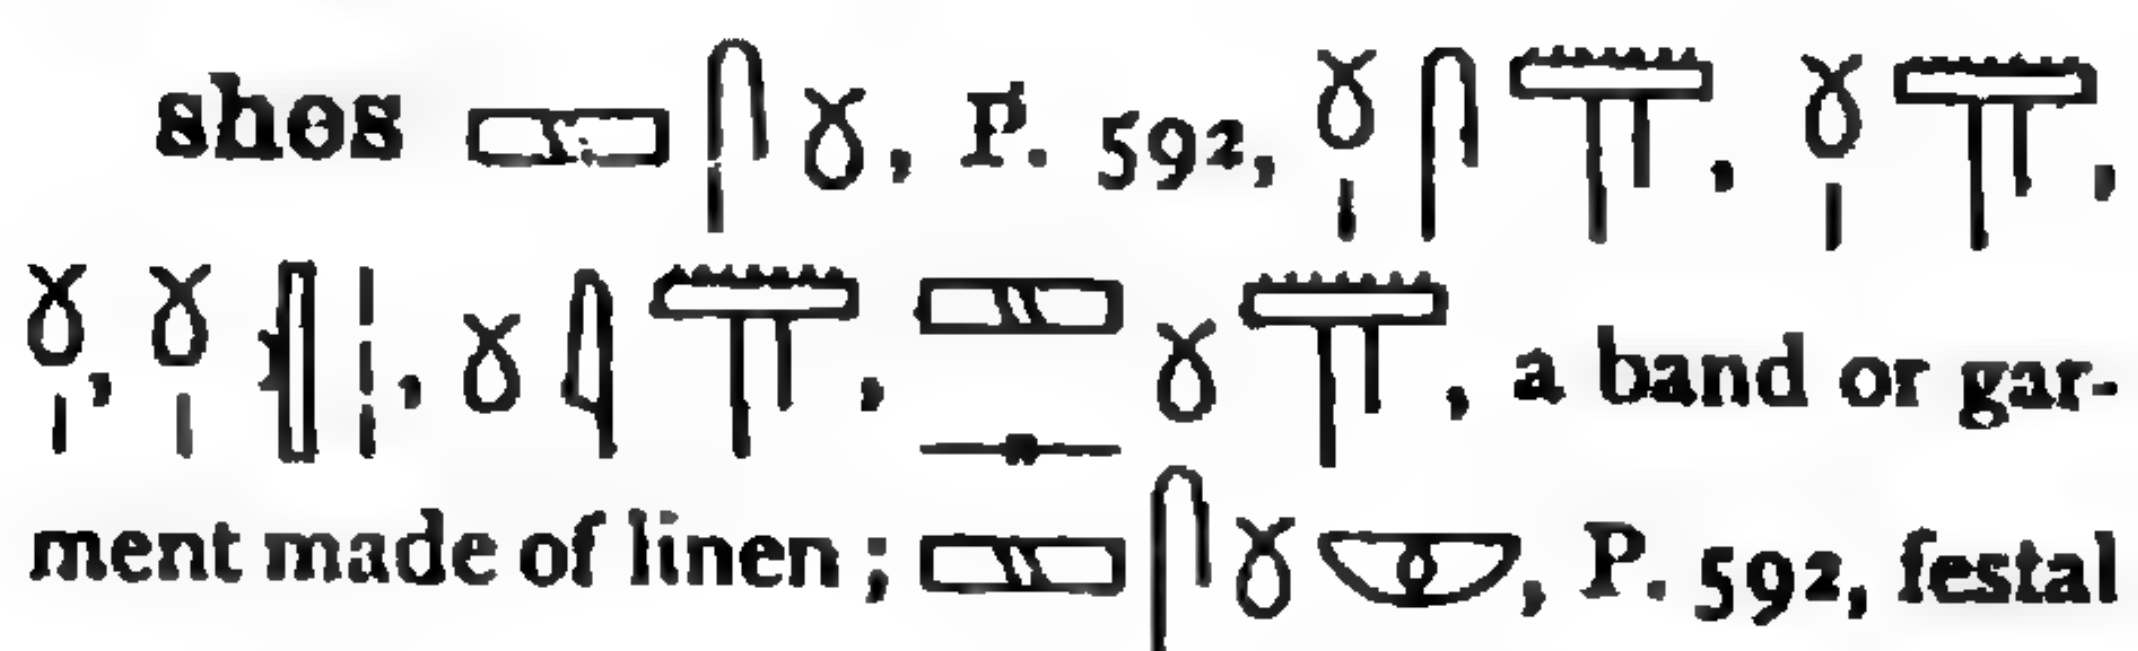 shes 𓈙𓋴𓍱, P. 592, 𓍱𓏤𓋴𓋲, 𓍱𓏤𓋲,
𓍱𓏤, 𓍱𓏤𓏜𓏪, 𓍱𓇋𓋲, 𓈙𓊃𓍱𓋲, a band or gar-
ment made of linen; 𓈙𓋴𓍱𓎱, P. 592, festal